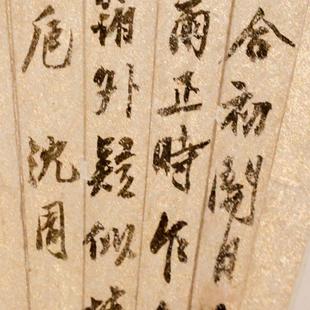 合初開自
雨正時作
外疑似
卮 沈周